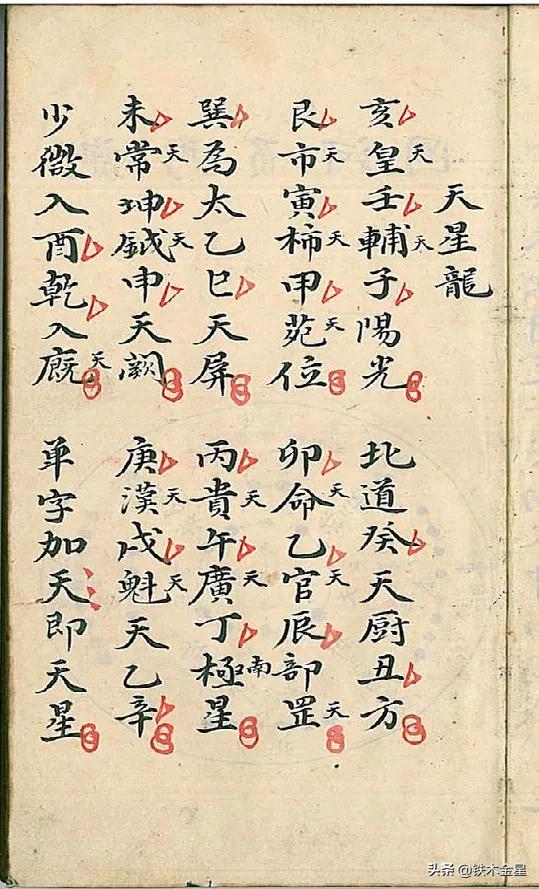 天星龍
亥皇天壬輔天子陽光
北道癸天厨丑方
艮市天寅柿天甲苑天位
卯命天乙官天辰部罡天
巽為太乙巳天屏
丙貴天午廣天丁極南星
未常天坤鉞天申天闕
庚漢天戌魁天天乙辛
少微入酉乾入廐天
单字加天即天星
头条 @铁木金星